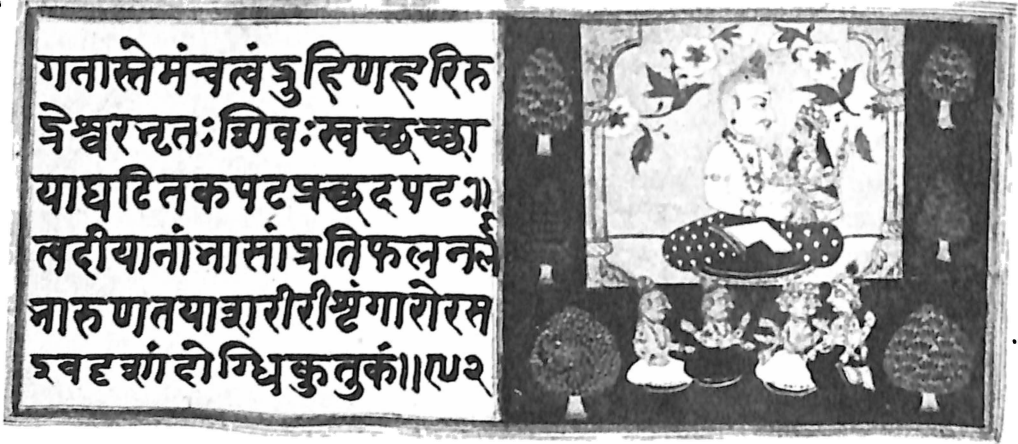 गतास्तेमंचत्वंद्रुहिणहरिरु
द्रेश्वरभृतःशिवःस्वच्छच्छा
याघटितकपटप्रच्छदपटः॥
त्वदीयानांभासांप्रतिफलनला
भारुणतयाशरीरीशृंगारोरस
इवदृशांदोग्धिकुतुकं॥९२